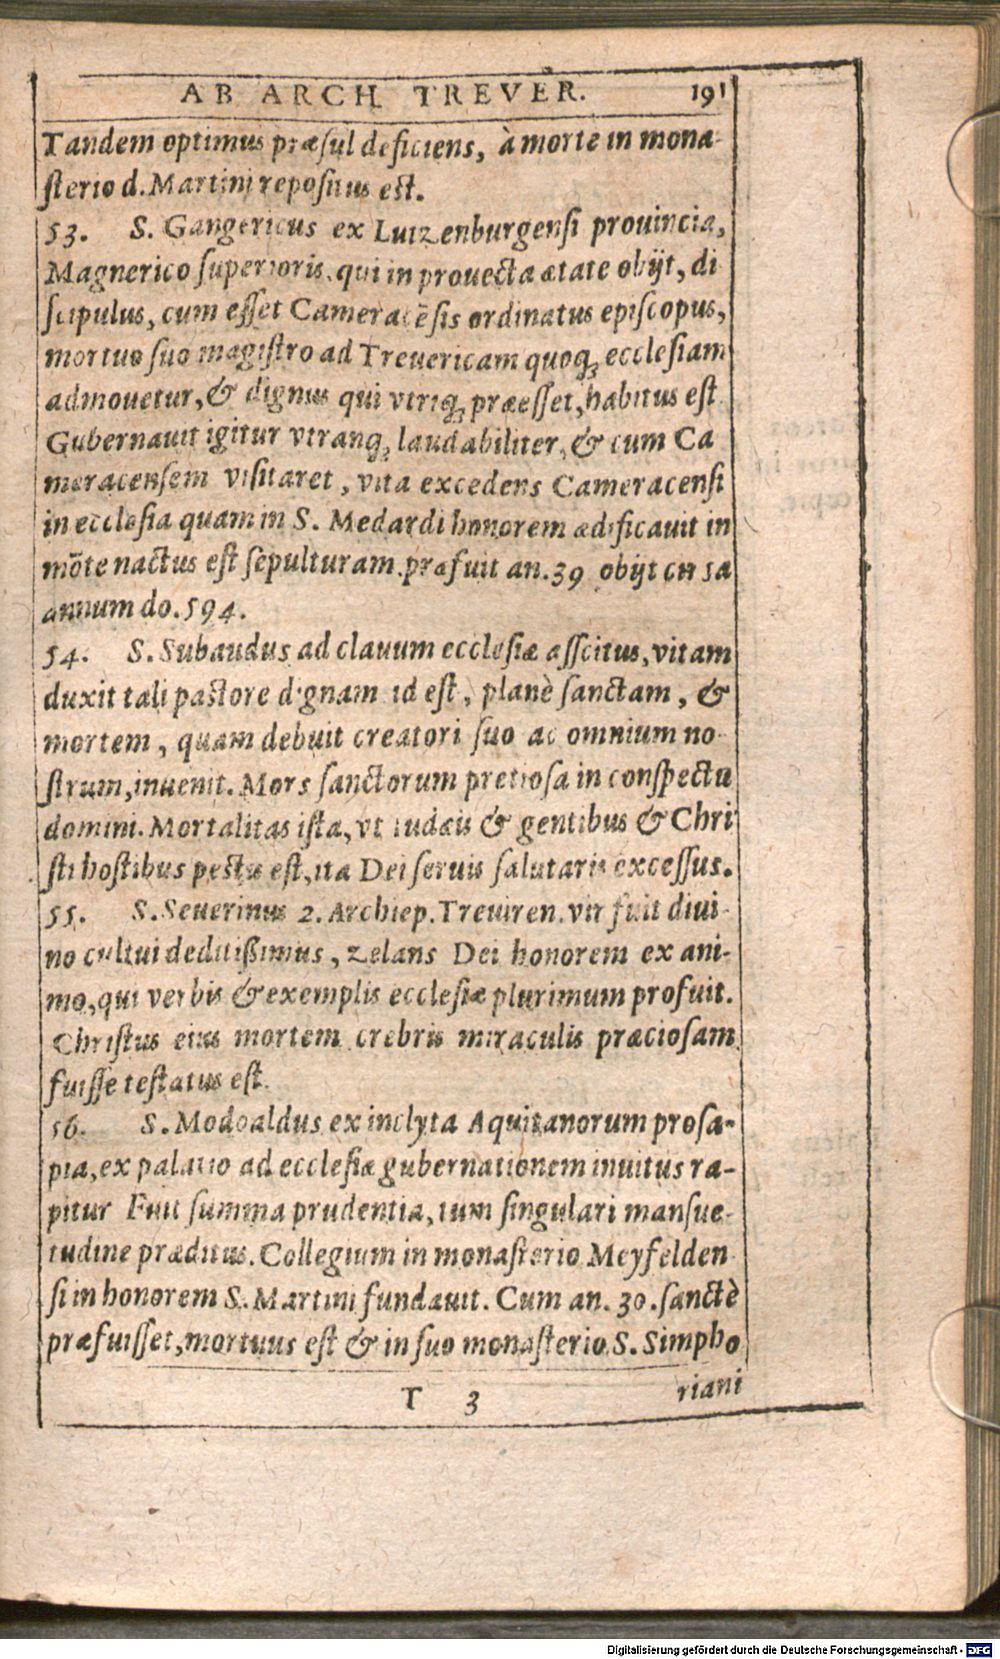 AB ARCH. TREVER. 191
Tandem optimus præſul deficiens, à morte in mona-
ſterio d. Martini repositus est.
53. S. Gangericus ex Lutzenburgensi prouincia,
Magnerico superioris, qui in prouecta ætate obijt, di
scipulus, cum eſſet Cameracēsis ordinatus episcopus,
mortuo suo magistro ad Treuericam quoq; ecclesiam
admouetur, & dignus qui vtriq; præeſſet, habitus est
Gubernauit igitur vtranq; laudabiliter, & cum Ca
meracensem visitaret, vita excedens Cameracensi
in ecclesia quam in S. Medardi honorem ædificauit in
mōte nactus est sepulturam. præfuit an. 39 obijt
annum do. 594.
54. S. Subaudus ad clauum ecclesiæ aſſcitus, vitam
duxit tali pastore dignam id est, planè sanctam, &
mortem, quam debuit creatori suo ac omnium no-
strum, inuenit. Mors sanctorum pretiosa in conspectu
domini. Mortalitas ista, vt iudæis & gentibus & Chri
sti hostibus pestis est, ita Dei seruis salutaris exceſſus.
55. S. Seuerinus 2. Archiep. Treuiren. vir fuit diui-
no cultui deditißimus, zelans Dei honorem ex ani-
mo, qui verbis & exemplis ecclesiæ plurimum profuit.
Christus eius mortem crebris miraculis præciosam
fuiſſe testatus est.
56. S. Modoaldus ex inclyta Aquitanorum prosa-
pia, ex palatio ad ecclesiæ gubernationem inuitus ra-
pitur Fuit summa prudentia, tum singulari mansue-
tudine præditus. Collegium in monasterio Meyfelden
si in honorem S. Martini fundauit. Cum an. 30. sanctè
præfuiſſet, mortuus est & in suo monasterio S. Simpho
T 3 riani
Digitalisierung gefördert durch die Deutsche Forschungsgemeinschaft - DFG